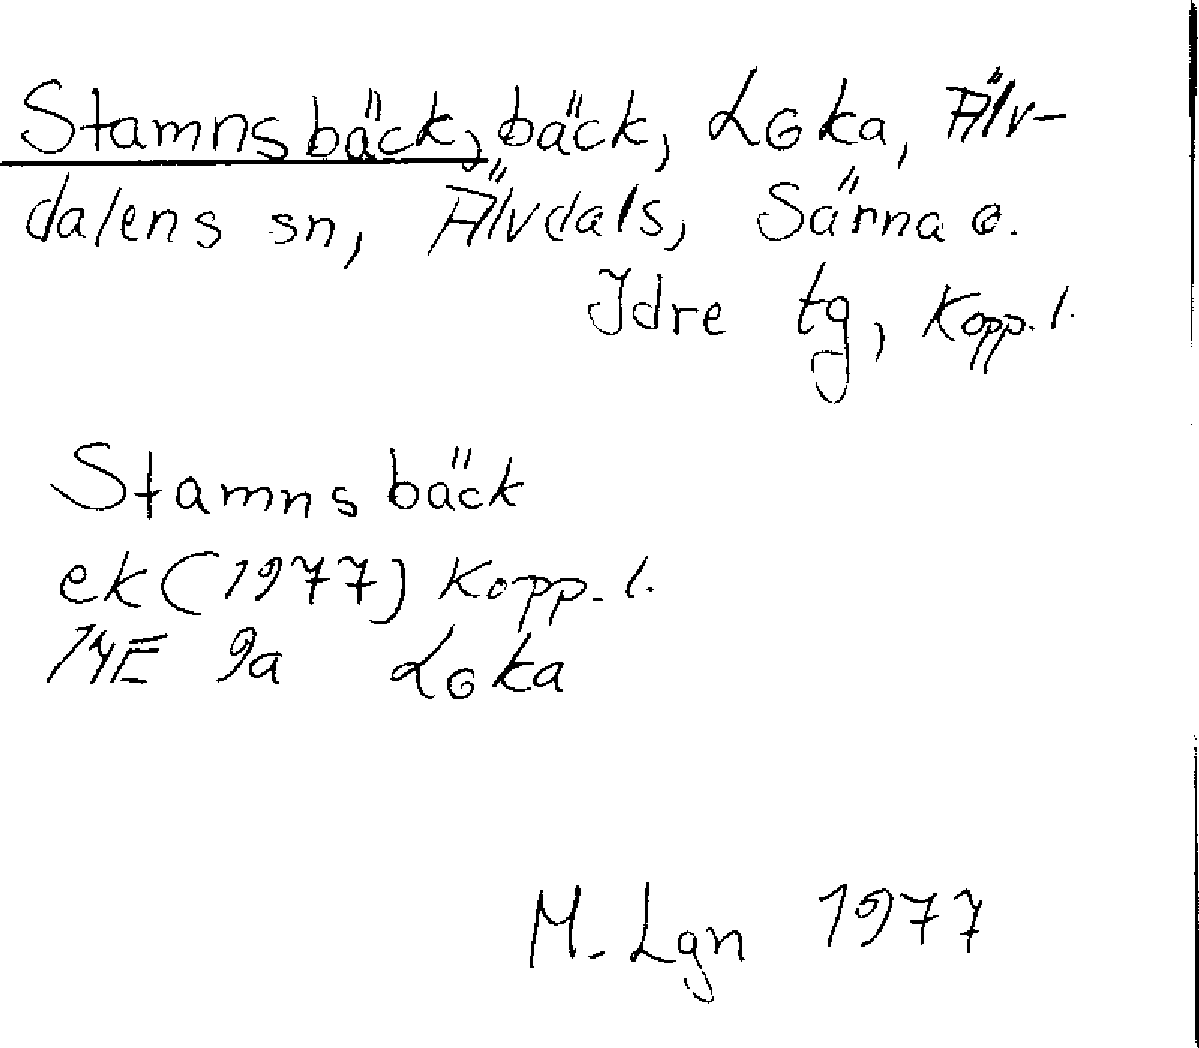 Stamnsbäck, bäck, Loka, Älv-
dalens sn, Älvdals, Särna o.
Idre tg, Kopp. l.
Stamnsbäck
ek (1977) Kopp. l.
14E 9a Loka
M. Lgn 1977